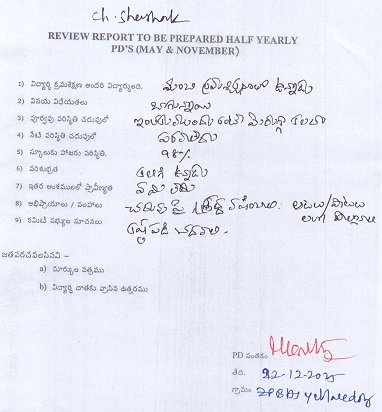 ch. Shashank
REVIEW REPORT TO BE PREPARED HALF YEARLY
PD'S (MAY & NOVEMBER)
1) విద్యార్థి క్రమశిక్షణ అందరి విద్యార్థులందు. మంచి క్రమశిక్షణలో ఉన్నాడు
2) వినయ విధేయతలు బాగున్నాయి
3) పూర్వపు పరిస్థితి చదువులో
4) నేటి పరిస్థితి చదువులో పరవాలేదు
5) స్కూలుకు హాజరు పరిస్థితి. 98%
6) పరిశుభ్రత కలిగి ఉన్నాడు
7) ఇతర అంశములలో ప్రావీణ్యత
8) అభిప్రాయాలు / సలహాలు చదువు పై శ్రద్ధ వహించాలి.
9) కమిటీ సభ్యుల సూచనలు కష్టపడి చదవాలి.
జతపరచవలసినవి -
a) మార్కుల పత్రము
b) విద్యార్థి దాతకు వ్రాసిన ఉత్తరము
PD సంతకం
తేది. 22-12-2025
గ్రామం ZPBHS yellareddy